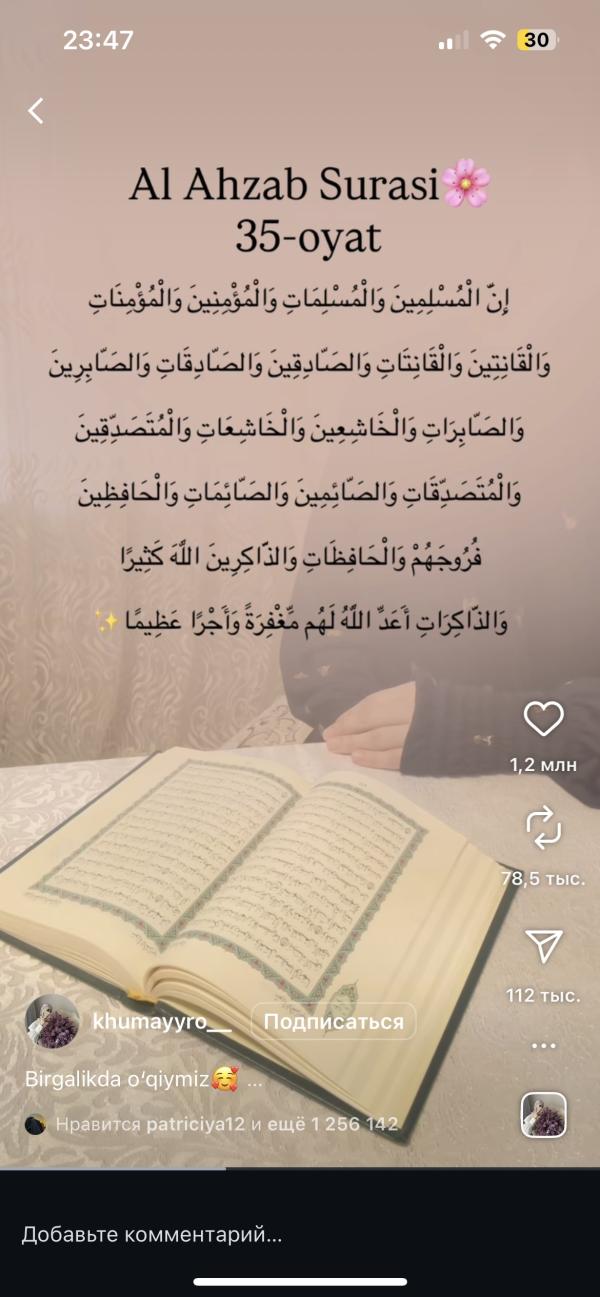 23:47
30
Al Ahzab Surasi🌸
35-oyat
إِنَّ الْمُسْلِمِينَ وَالْمُسْلِمَاتِ وَالْمُؤْمِنِينَ وَالْمُؤْمِنَاتِ
وَالْقَانِتِينَ وَالْقَانِتَاتِ وَالصَّادِقِينَ وَالصَّادِقَاتِ وَالصَّابِرِينَ
وَالصَّابِرَاتِ وَالْخَاشِعِينَ وَالْخَاشِعَاتِ وَالْمُتَصَدِّقِينَ
وَالْمُتَصَدِّقَاتِ وَالصَّائِمِينَ وَالصَّائِمَاتِ وَالْحَافِظِينَ
فُرُوجَهُمْ وَالْحَافِظَاتِ وَالذَّاكِرِينَ اللَّهَ كَثِيرًا
وَالذَّاكِرَاتِ أَعَدَّ اللَّهُ لَهُم مَّغْفِرَةً وَأَجْرًا عَظِيمًا ✨
1,2 млн
78,5 тыс.
112 тыс.
khumayyro__ Подписаться
Birgalikda o‘qiymiz🥰 ...
Нравится patriciya12 и ещё 1 256 142
Добавьте комментарий...